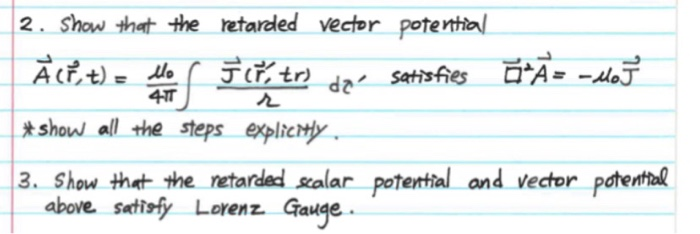 2. Show that the retarded vector potential
Ā(r⃗,t) = μ₀/4π ∫ J⃗(r⃗′, tr)/r dτ′ satisfies □⃗²A⃗ = -μ₀J⃗
*show all the steps explicitly.
3. Show that the retarded scalar potential and vector potential
above satisfy Lorenz Gauge.